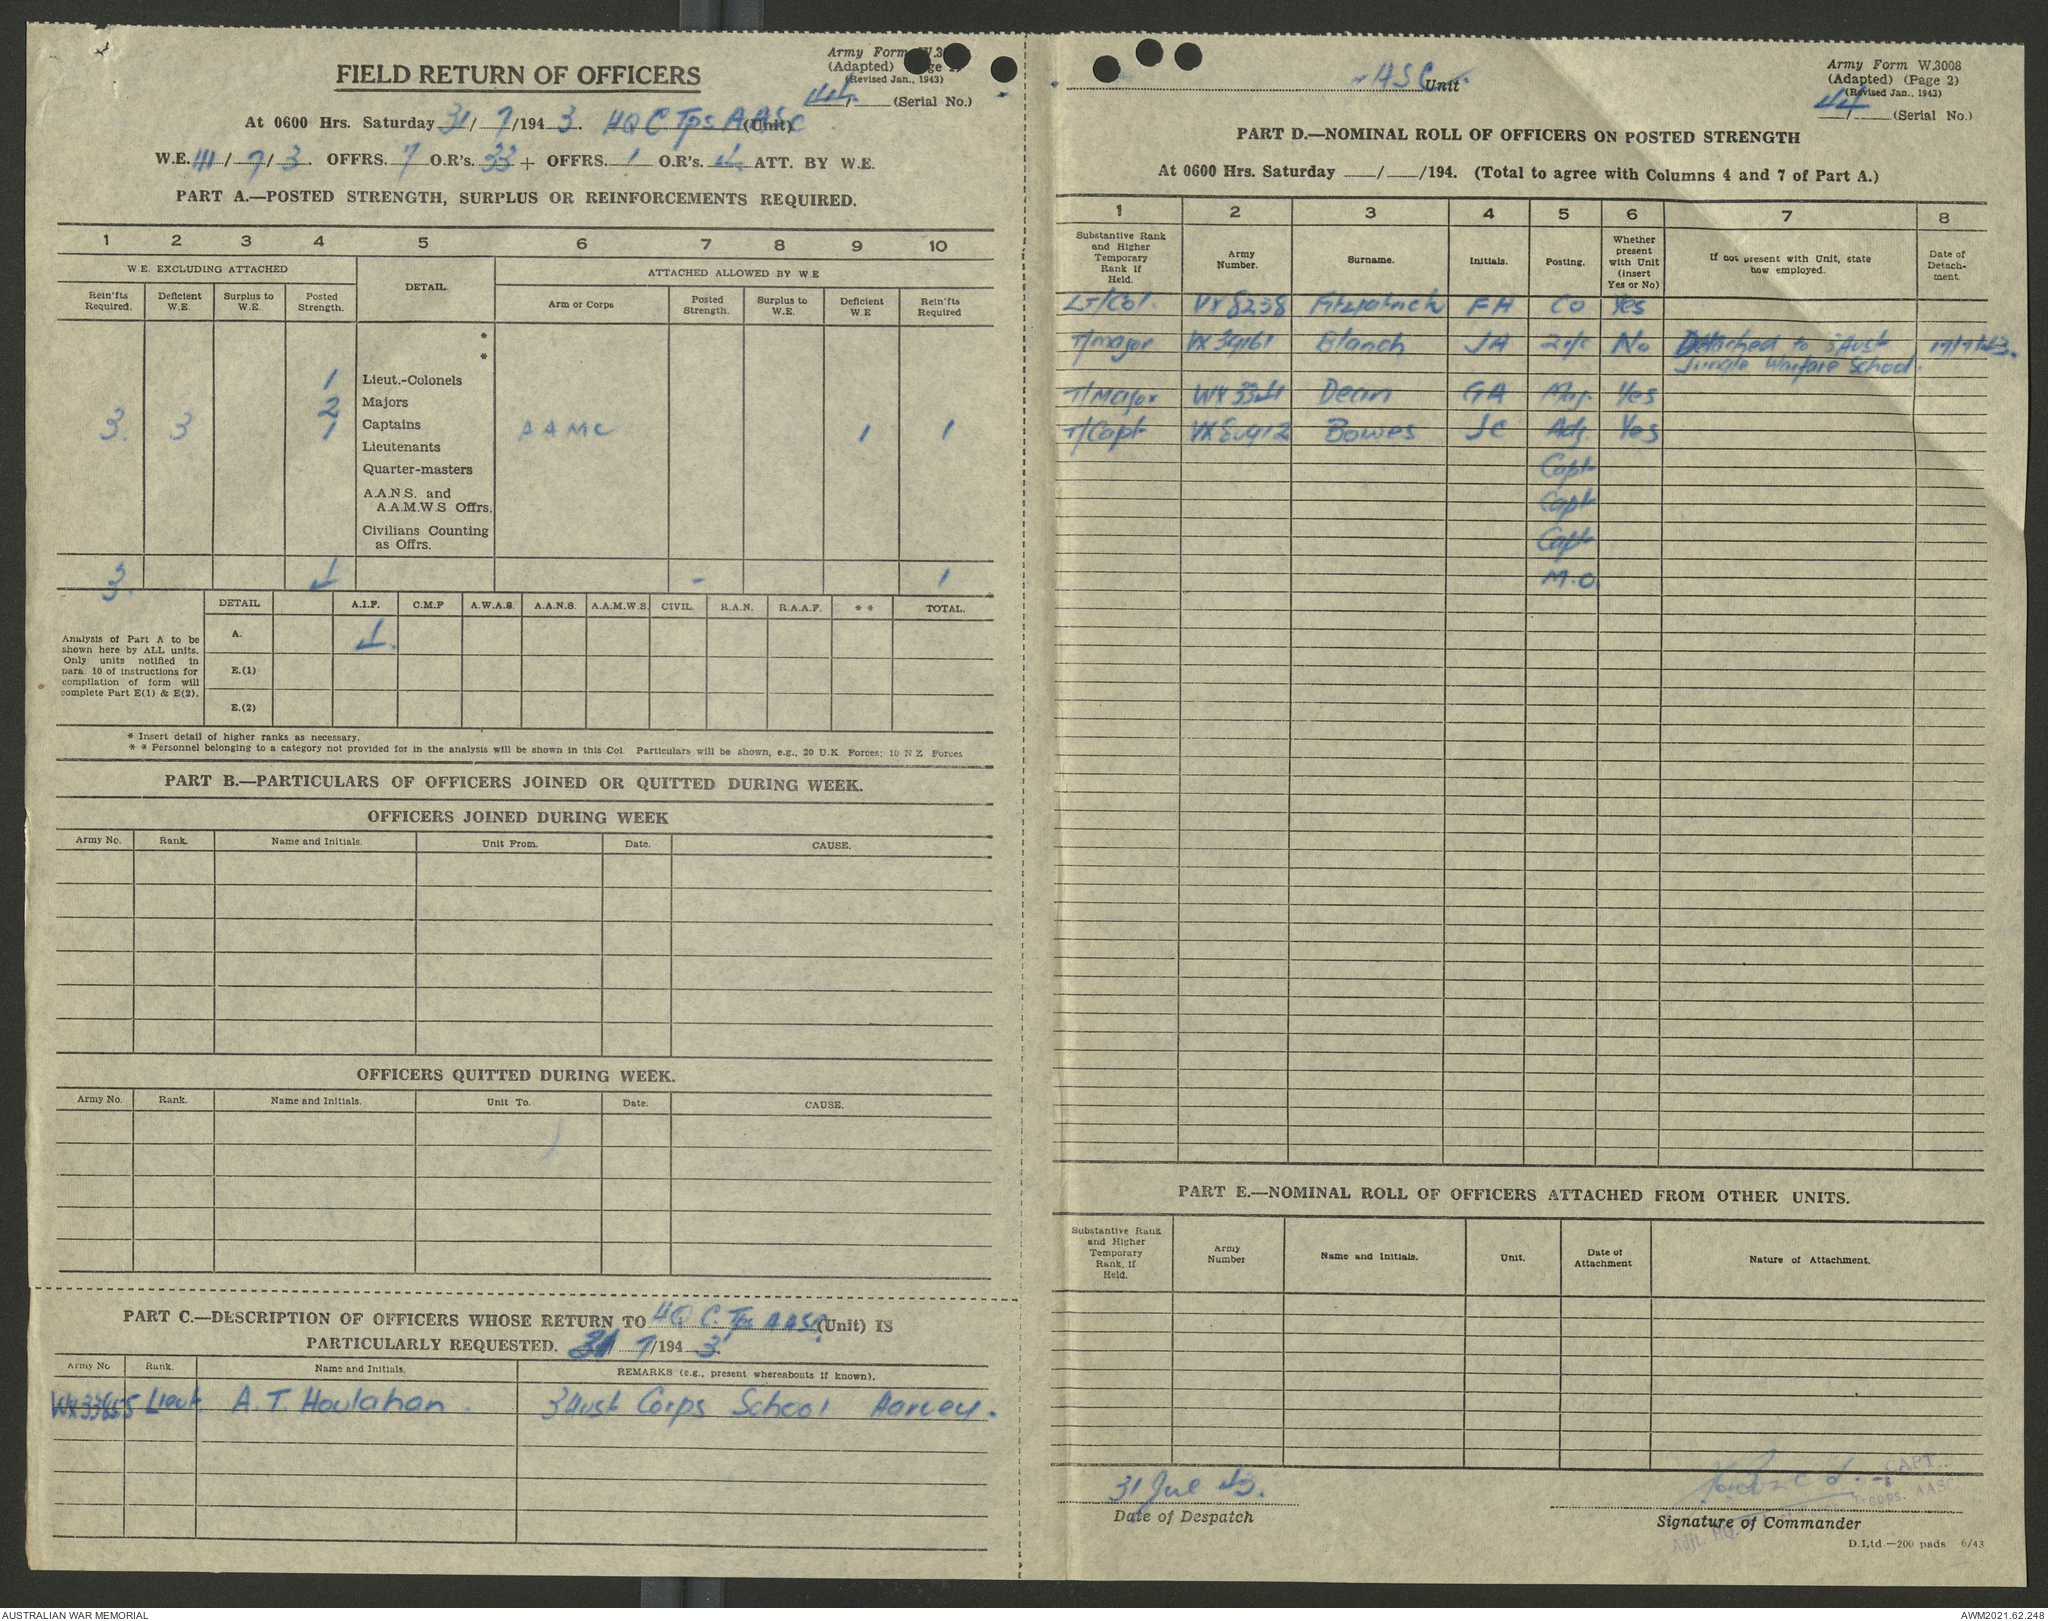 FIELD RETURN OF OFFICERS
Army Form W.3
(Adapted) ge 2)
(Revised Jan., 1943)
44 (Serial No.)
At 0600 Hrs. Saturday 31/7/1943. HQ C Tps AASC (Unit)
W.E. 111/7/3. OFFRS. 7 O.R's. 33 + OFFRS. 1 O.R's. 4 ATT. BY W.E.
PART A.—POSTED STRENGTH, SURPLUS OR REINFORCEMENTS REQUIRED.
1 2 3 4 5 6 7 8 9 10
W.E. EXCLUDING ATTACHED DETAIL. ATTACHED ALLOWED BY W.E
Rein'fts Required. Deficient W.E. Surplus to W.E. Posted Strength. Arm or Corps Posted Strength. Surplus to W.E. Deficient W.E Rein'fts Required
*
*
1 Lieut.-Colonels
2 Majors
3. 3 1 Captains AAMC 1 1
Lieutenants
Quarter-masters
A.A.N.S. and
A.A.M.W.S Offrs.
Civilians Counting
as Offrs.
3. 4 - 1
DETAIL A.I.F. C.M.F A.W.A.S. A.A.N.S. A.A.M.W.S. CIVIL. R.A.N. R.A.A.F. * * TOTAL.
Analysis of Part A to be
shown here by ALL units.
Only units notified in
para. 10 of instructions for
compilation of form will
complete Part E(1) & E(2).
A. 4.
E.(1)
E.(2)
* Insert detail of higher ranks as necessary.
* * Personnel belonging to a category not provided for in the analysis will be shown in this Col. Particulars will be shown, e.g., 20 U.K Forces; 10 N Z Forces
PART B.—PARTICULARS OF OFFICERS JOINED OR QUITTED DURING WEEK.
OFFICERS JOINED DURING WEEK
Army No. Rank. Name and Initials. Unit From. Date. CAUSE.
OFFICERS QUITTED DURING WEEK.
Army No. Rank. Name and Initials. Unit To. Date. CAUSE.
PART C.—DESCRIPTION OF OFFICERS WHOSE RETURN TO HQ C. Tps AASC (Unit) IS
PARTICULARLY REQUESTED. 31/7/1943.
Army No Rank. Name and Initials. REMARKS (e.g., present whereabouts if known).
WX33655 Lieut A. T. Houlahan. 3 Aust Corps School Harvey.
ASC Unit
Army Form W.3008
(Adapted) (Page 2)
(Revised Jan., 1943)
44 (Serial No.)
PART D.—NOMINAL ROLL OF OFFICERS ON POSTED STRENGTH
At 0600 Hrs. Saturday / /194. (Total to agree with Columns 4 and 7 of Part A.)
1 2 3 4 5 6 7 8
Substantive Rank and Higher Temporary Rank if Held. Army Number. Surname. Initials. Posting. Whether present with Unit (insert Yes or No) If not present with Unit, state how employed. Date of Detachment.
Lt/Col. VX8238 Fitzpatrick FH CO Yes
T/Major VX34161 Blanch JA 2 i/c No Detached to 3 Aust 17/7/43.
Jungle Warfare School.
T/Major WX3341 Dean GA Maj. Yes
T/Capt Bowes JC Adj. Yes
Capt
Capt
Capt
M.O.
PART E.—NOMINAL ROLL OF OFFICERS ATTACHED FROM OTHER UNITS.
Substantive Rank and Higher Temporary Rank, if Held. Army Number Name and Initials. Unit. Date of Attachment Nature of Attachment.
31 Jul 43.
Date of Despatch
CAPT.
Adjt. HQ Troops. AASC
Signature of Commander
D.Ltd —200 pads 6/43
AUSTRALIAN WAR MEMORIAL
AWM2021.62.248